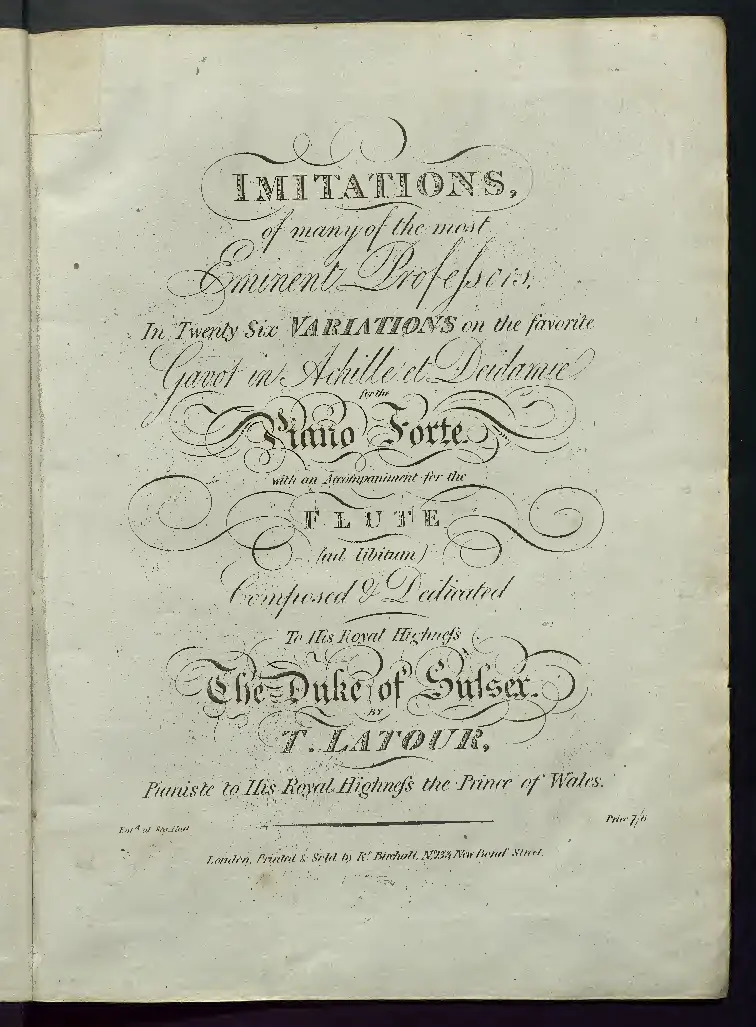 IMITATIONS,
of many of the most
Eminent Profeſsors,
In Twenty Six VARIATIONS on the favorite
Gavot in Achille et Deidamie
for the
Piano Forte.
with an Accompaniment for the
FLUTE
(ad libitum)
Composed & Dedicated
To His Royal Highneſs
The Duke of Suſsex.
BY
T. LATOUR,
Pianiste to His Royal Highneſs the Prince of Wales.
Ent.d at Sta. Hall
Price 7/6
London, Printed & Sold by R.t Birchall, No. 133, New Bond Street.